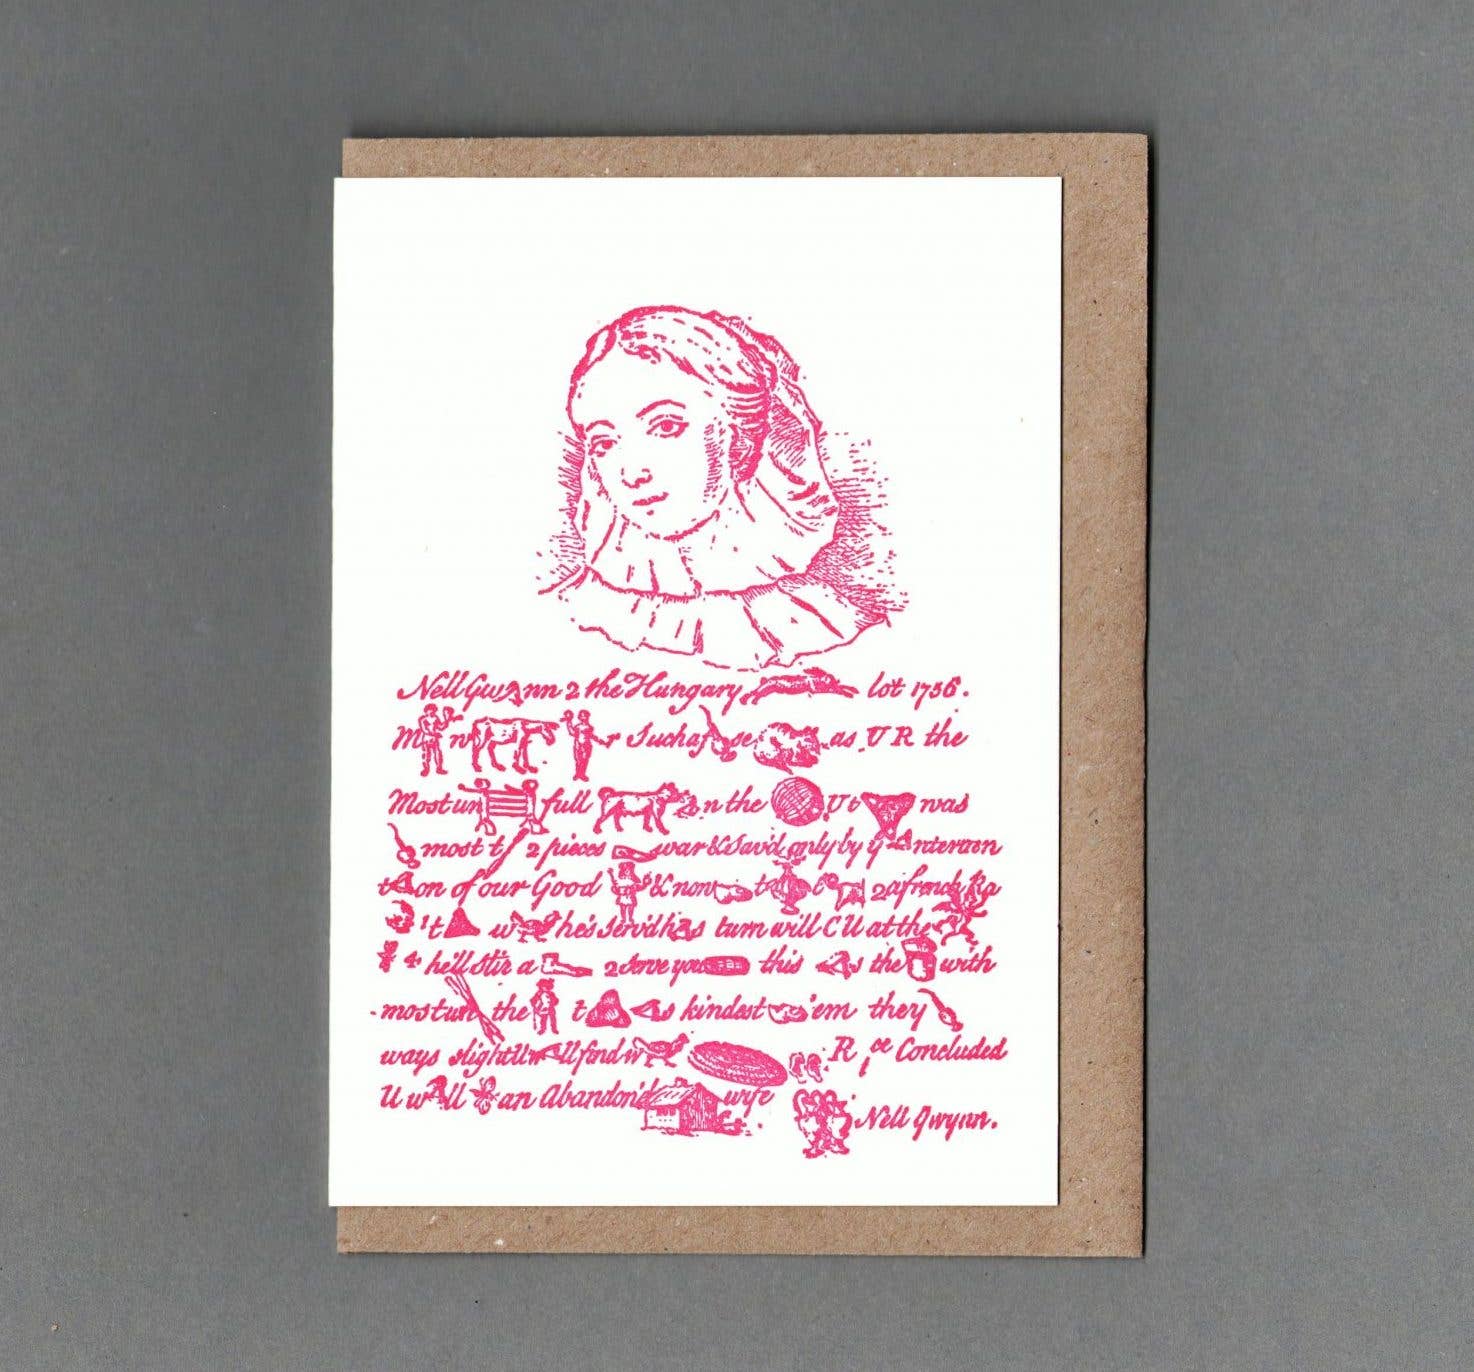 Nell Gwynn 2 the Hungary lot 1756.
M n r Such a se as U R the
Most un full n the U t was
most t 2 pieces war & Sav'd only by y
t on of our Good & non t t 2 a french Ra
't w he's serv'd h s turn will C U at the
4 he'll Stir a 2 serve you this s the with
most un the t s kindest 'em they
ways slight U w ll find w R Concluded
U w ll an Abandon'd wife
Nell Gwynn.